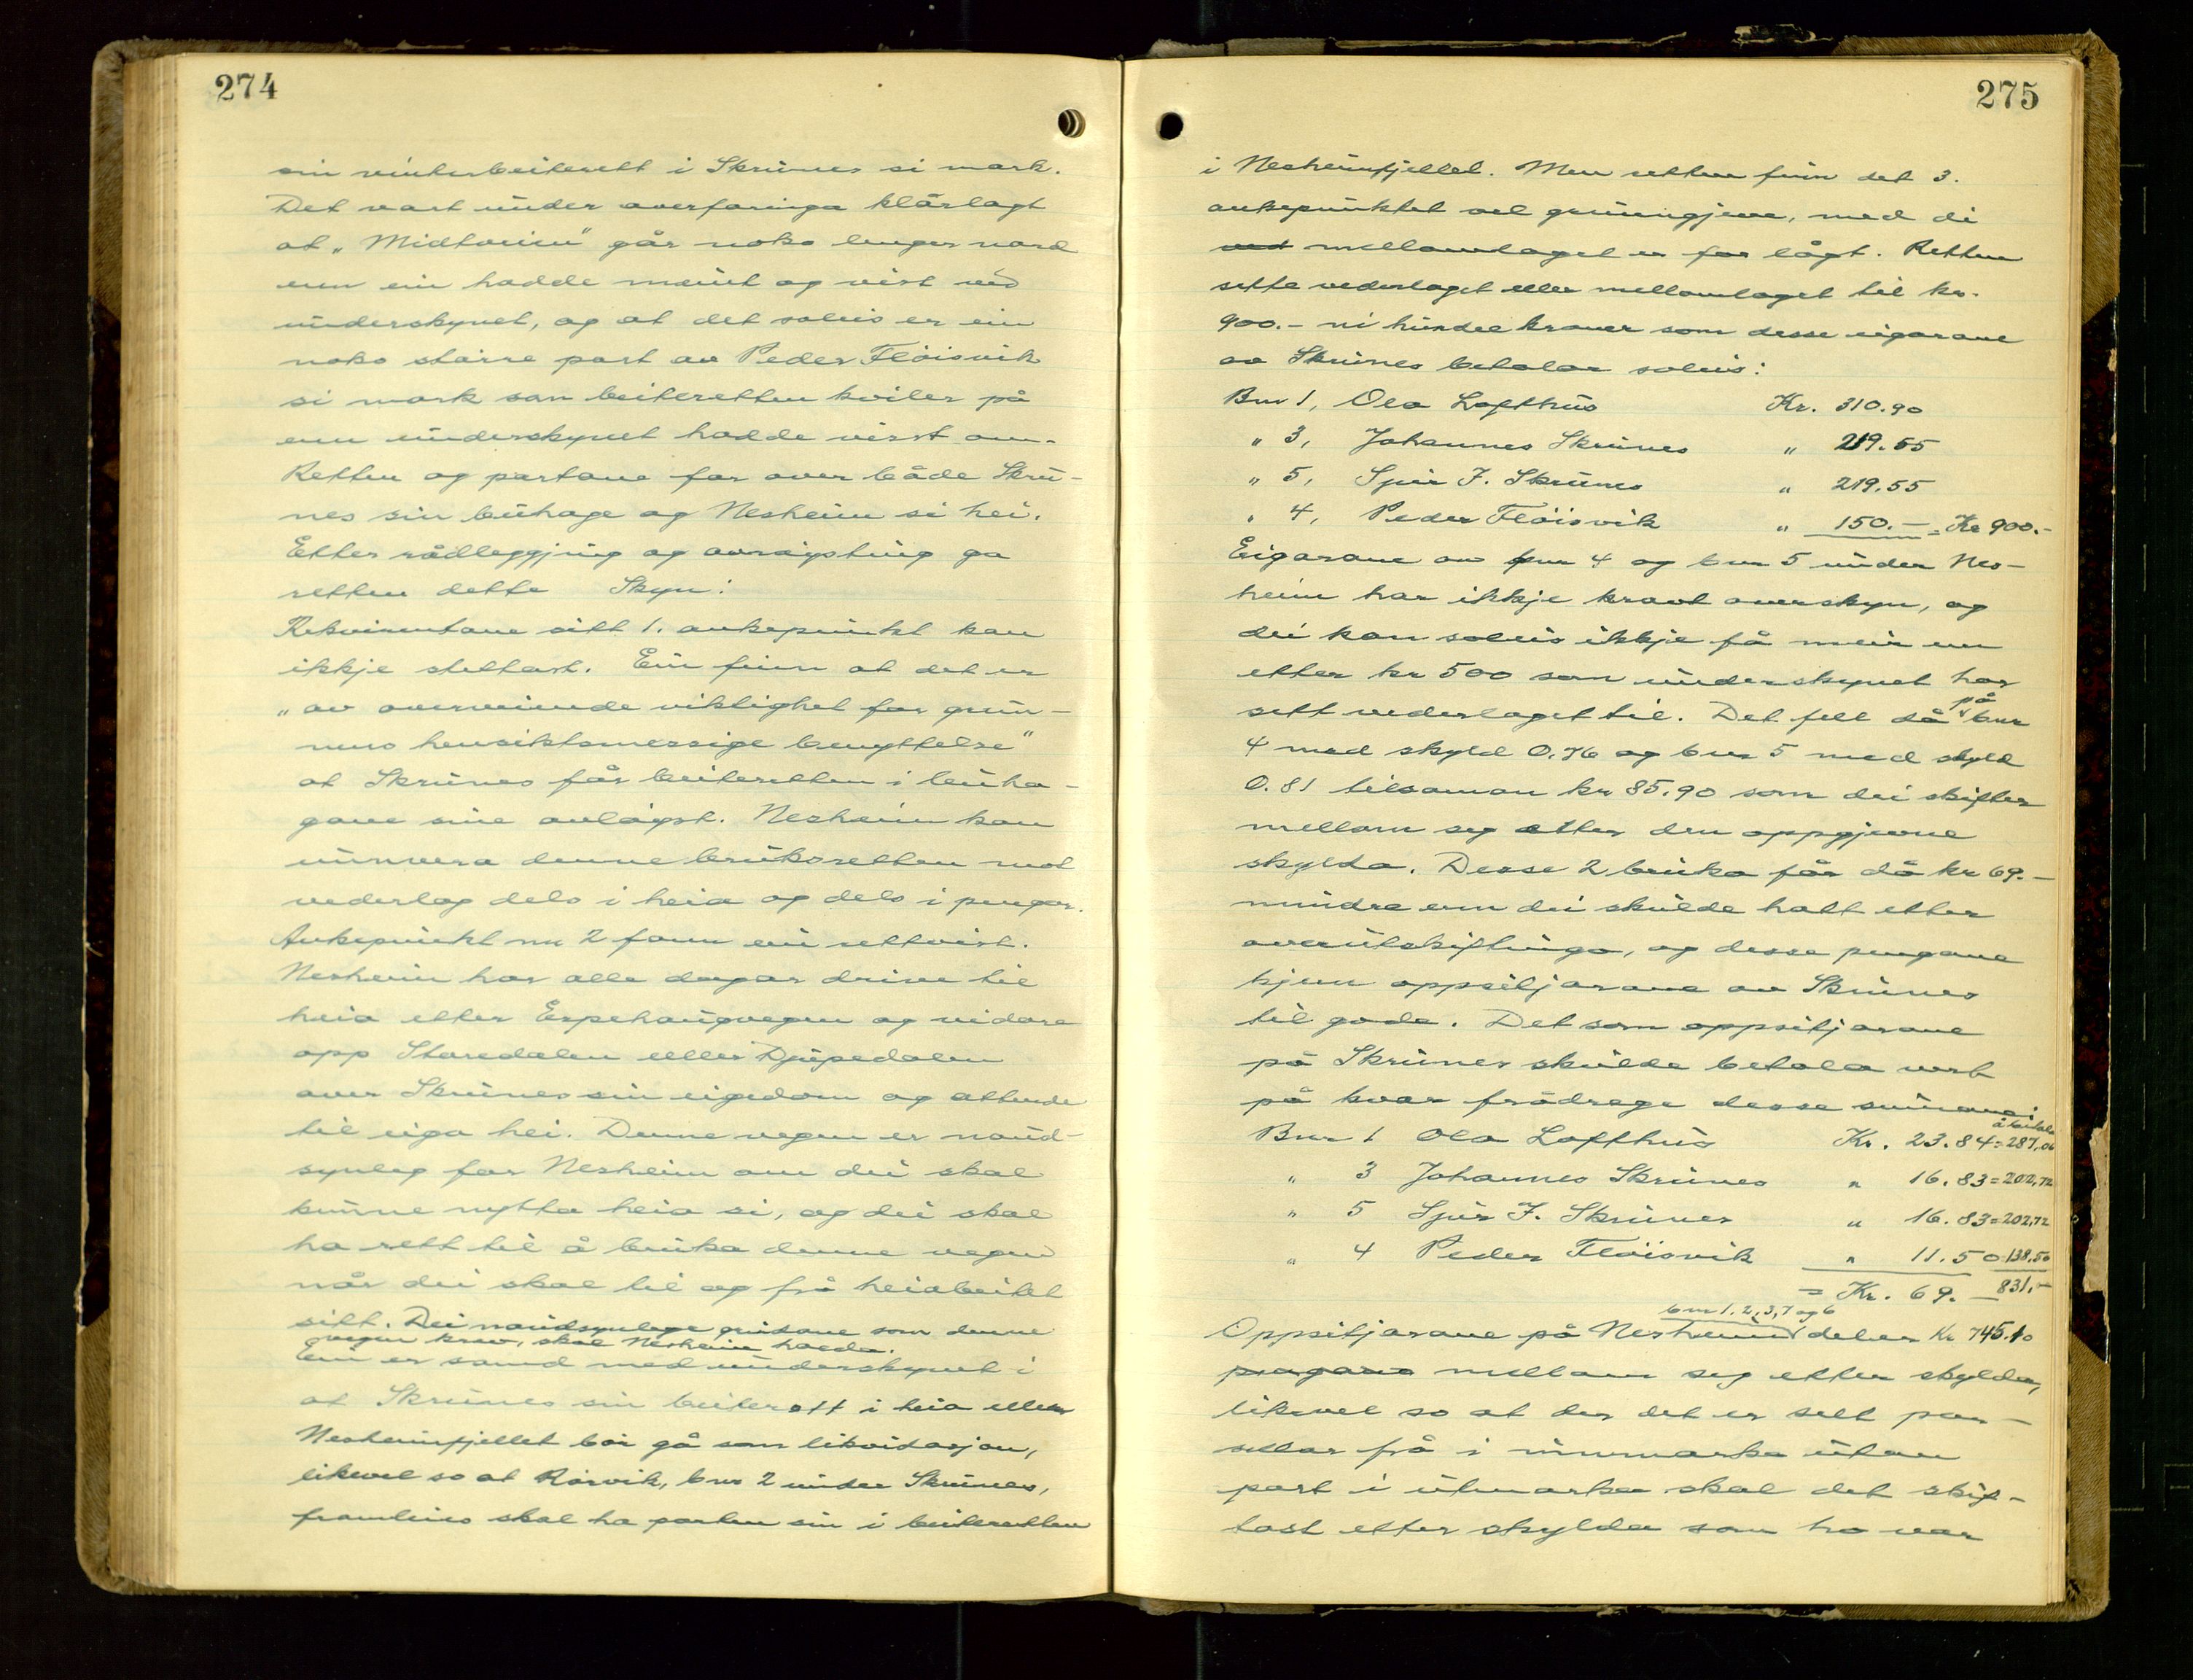 274
sin vinterbeiterett i Skrunes si mark.
Det vart under overfaringa klårlagt
at „Midtveien" går noko lenger nord
enn ein hadde meint og vist ved
underskynet, og at det soleis er ein
noko større part av Peder Fløisvik
si mark som beiteretten kviler på
enn underskynet hadde visst om.
Retten og partane for over både Skru-
nes sin buhage og Nesheim si hei.
Etter rådleggjing og avrøysting ga
retten dette Skyn:
Rekvirentane sitt 1. ankepunkt kan
ikkje stettast. Ein finn at det er
„av overveiende viktighet for grun-
nens hensiktsmessige benyttelse"
at Skrunes får beiteretten i buha-
gane sine avløyst. Nesheim kan
unnvera denne bruksretten mot
vederlag dels i heia og dels i pengar.
Ankepunkt nr 2 fann ein rettvist.
Nesheim har alle dagar drive til
heia etter Espehaugvegen og vidare
opp Storedalen eller Djupedalen
over Skrunes sin eigedom og attende
til eiga hei. Denne vegen er naud-
synleg for Nesheim om dei skal
kunne nytta heia si, og dei skal
ha rett til å bruka denne vegen
når dei skal til og frå heiabeitet
sitt. Dei naudsynlege grindane som denne
vegen krev, skal Nesheim halda.
Ein er samd med underskynet i
at Skrunes sin beiterett i heia eller
Nesheimfjellet bør gå som likvidasjon,
likevel so at Rørvik, bnr 2 under Skrunes,
framleies skal ha parten sin i beiteretten
275
i Nesheimfjellet. Men retten finn det 3.
ankepunktet vel grunngjeve, med di
ved mellomlaget er for lågt. Retten
sette vederlaget eller mellomlaget til kr.
900.- ni hundre kroner som desse eigarane
av Skrunes betalar soleis:
Bnr 1, Ola Lofthus Kr. 310.90
" 3, Johannes Skrunes " 219.55
" 5, Sjur J. Skrunes " 219.55
" 4, Peder Fløisvik " 150.- = Kr 900.-
Eigarane av bnr 4 og bnr 5 under Nes-
heim har ikkje kravt overskyn, og
dei kan soleis ikkje få meir enn
etter kr 500 som underskynet har
sett vederlaget til. Det fell då på bnr
4 med skyld 0.76 og bnr 5 med skyld
0.81 tilsaman kr 85.90 som dei skifter
mellom seg etter den oppgjevne
skylda. Desse 2 bruka får då kr 69.-
mindre enn dei skulde hatt etter
overutskiftinga, og desse pengane
kjem oppsitjarane av Skrunes
til gode. Det som oppsitjarane
på Skrunes skulde betala vert
på kvar frådrege desse summane:
å betala
Bnr 1 Ola Lofthus Kr. 23.84 = 287,06
" 3 Johannes Skrunes " 16.83 = 202,72
" 5 Sjur J. Skrunes " 16.83 = 202,72
" 4 Peder Fløisvik " 11.50 138,50
= Kr. 69.- 831,-
bnr 1, 2, 3, 7 og 6
Oppsitjarane på Nesheim deler Kr 745.10
pengane mellom seg etter skylda,
likevel so at der det er selt par-
sellar frå i innmarka utan
part i utmarka skal det skif-
tast etter skylda som ho var